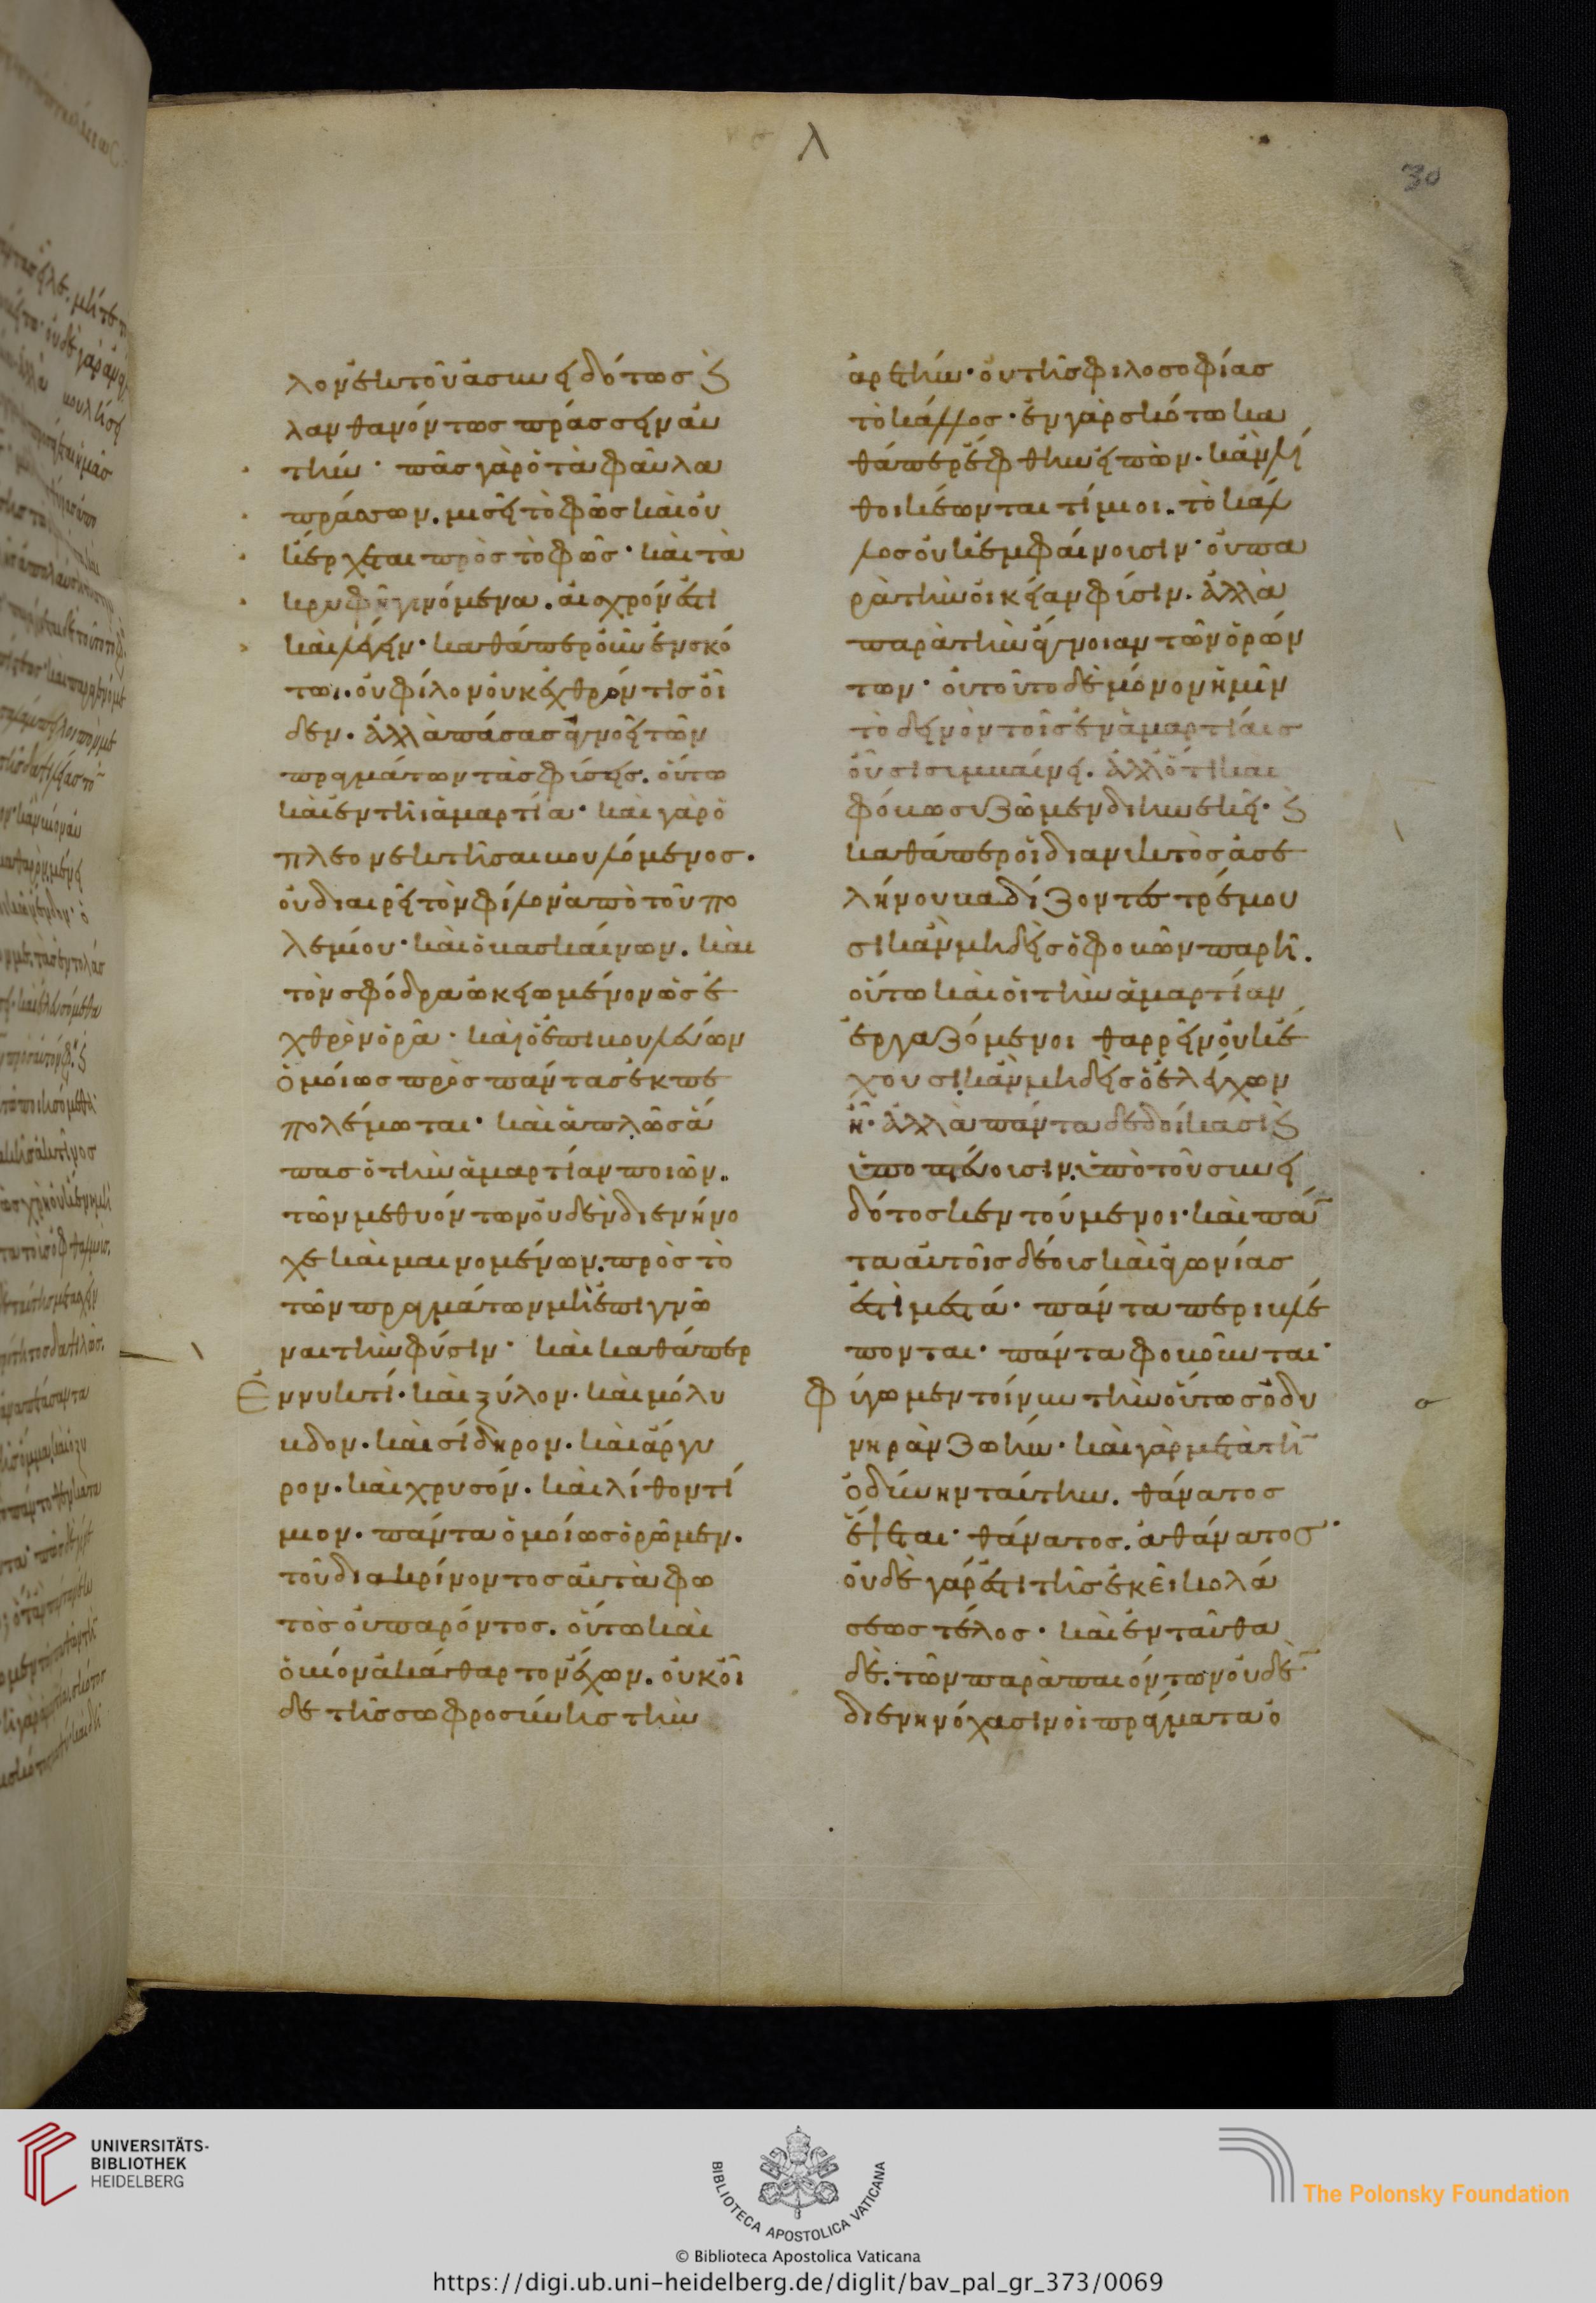 λ
30
λον ἐκ τοῦ ἀσυνειδότως καὶ
λανθανόντως πράσσειν αὐ
τήν· πᾶς γὰρ ὁ τὰ φαῦλα
πράσσων. μισεῖ τὸ φῶς καὶ οὐ
κ ἔρχεται πρὸς τὸ φῶς· καὶ τὰ
κρυφῆ γινόμενα. αἰσχρόν ἐστι
καὶ λέγειν· καθάπερ οὖν ἐν σκό
τωι. οὐ φίλον οὐκ ἐχθρόν τις οἶ
δεν. ἀλλὰ πάσας ἀγνοεῖ τῶν
πραγμάτων τὰς φύσεις. οὕτω
καὶ ἐν τῆι ἁμαρτία· καὶ γὰρ ὁ
πλεονεκτῆσαι βουλόμενος.
οὐ διαιρεῖ τὸν φίλον ἀπὸ τοῦ πο
λεμίου· καὶ ὁ βασκαίνων. καὶ
τὸν σφόδρα ὠκειωμένον ὡς ἐ
χθρὸν ὁρᾶ· καὶ ὁ ἐπιβουλεύων
ὁμοίως πρὸς πάντας ἐκπε
πολέμωται· καὶ ἁπλῶς ἅ
πας ὁ τὴν ἁμαρτίαν ποιῶν.
τῶν μεθυόντων οὐδὲν διενήνο
χε καὶ μαινομένων. πρὸς τὸ
τῶν πραγμάτων μὴ ἐπιγνῶ
ναι τὴν φύσιν· καὶ καθάπερ
Ἐν νυκτί. καὶ ξύλον. καὶ μόλυ
βδον. καὶ σίδηρον. καὶ ἄργυ
ρον. καὶ χρυσόν. καὶ λίθον τί
μιον. πάντα ὁμοίως ὁρῶμεν.
τοῦ διακρίνοντος αὐτὰ φω
τὸς οὐ παρόντος. οὕτω καὶ
ὁ βίον ἀκάθαρτον ἔχων. οὐκ οἶ
δε τῆς σωφροσύνης τὴν
ἀρετήν· οὐ τῆς φιλοσοφίας
τὸ κάλλος· ἐν γὰρ σκότω κα
θάπερ ἔφθην εἰπὼν. κἂν λί
θοι κέωνται τίμιοι. τὸ κάλ
λος οὐκ ἐμφαίνουσιν· οὐ πα
ρὰ τὴν οἰκείαν φύσιν. ἀλλὰ
παρὰ τὴν ἄγνοιαν τῶν ὁρών
των· οὐ τοῦτο δὲ μόνον ἡμῖν
τὸ δεινὸν τοῖς ἐν ἁμαρτίαις
οὖσι συμβαίνει. ἀλλ' ὅτι καὶ
φόβω συζῶμεν διηνεκεῖ· καὶ
καθάπερ οἱ διανυκτὸς ἀσε
λήνου βαδίζοντες τρέμου
σι κἂν μηδεὶς ὁ φοβῶν παρῆ.
οὕτω καὶ οἱ τὴν ἁμαρτίαν
ἐργαζόμενοι θαρρεῖν οὐκ ἔ
χουσι κἂν μηδεὶς ὁ ἐλέγχων
ἦ. ἀλλὰ πάντα δεδοίκασι καὶ
ὑποπτεύουσιν. ὑπὸ τοῦ συνει
δότος κεντούμενοι· καὶ πάν
τα αὐτοῖς δέους καὶ ἀγωνίας
ἐστὶ μεστά· πάντα περιβλέ
πονται· πάντα φοβοῦνται·
Φύγωμεν τοίνυν τὴν οὕτως ὀδυ
νηρὰν ζωήν· καὶ γὰρ μετὰ τὴν
ὀδύνην ταύτην. θάνατος
ἕψεται· θάνατος. ἀθάνατος·
οὐδὲ γάρ ἐστι τῆς ἐκεῖ κολά
σεως τέλος· καὶ ἐνταῦθα
δὲ. τῶν παραπαιόντων οὐδὲν
διενηνόχασιν οἱ πράγματα ὀ
UNIVERSITÄTS-
BIBLIOTHEK
HEIDELBERG
BIBLIOTECA APOSTOLICA VATICANA
The Polonsky Foundation
© Biblioteca Apostolica Vaticana
https://digi.ub.uni-heidelberg.de/diglit/bav_pal_gr_373/0069